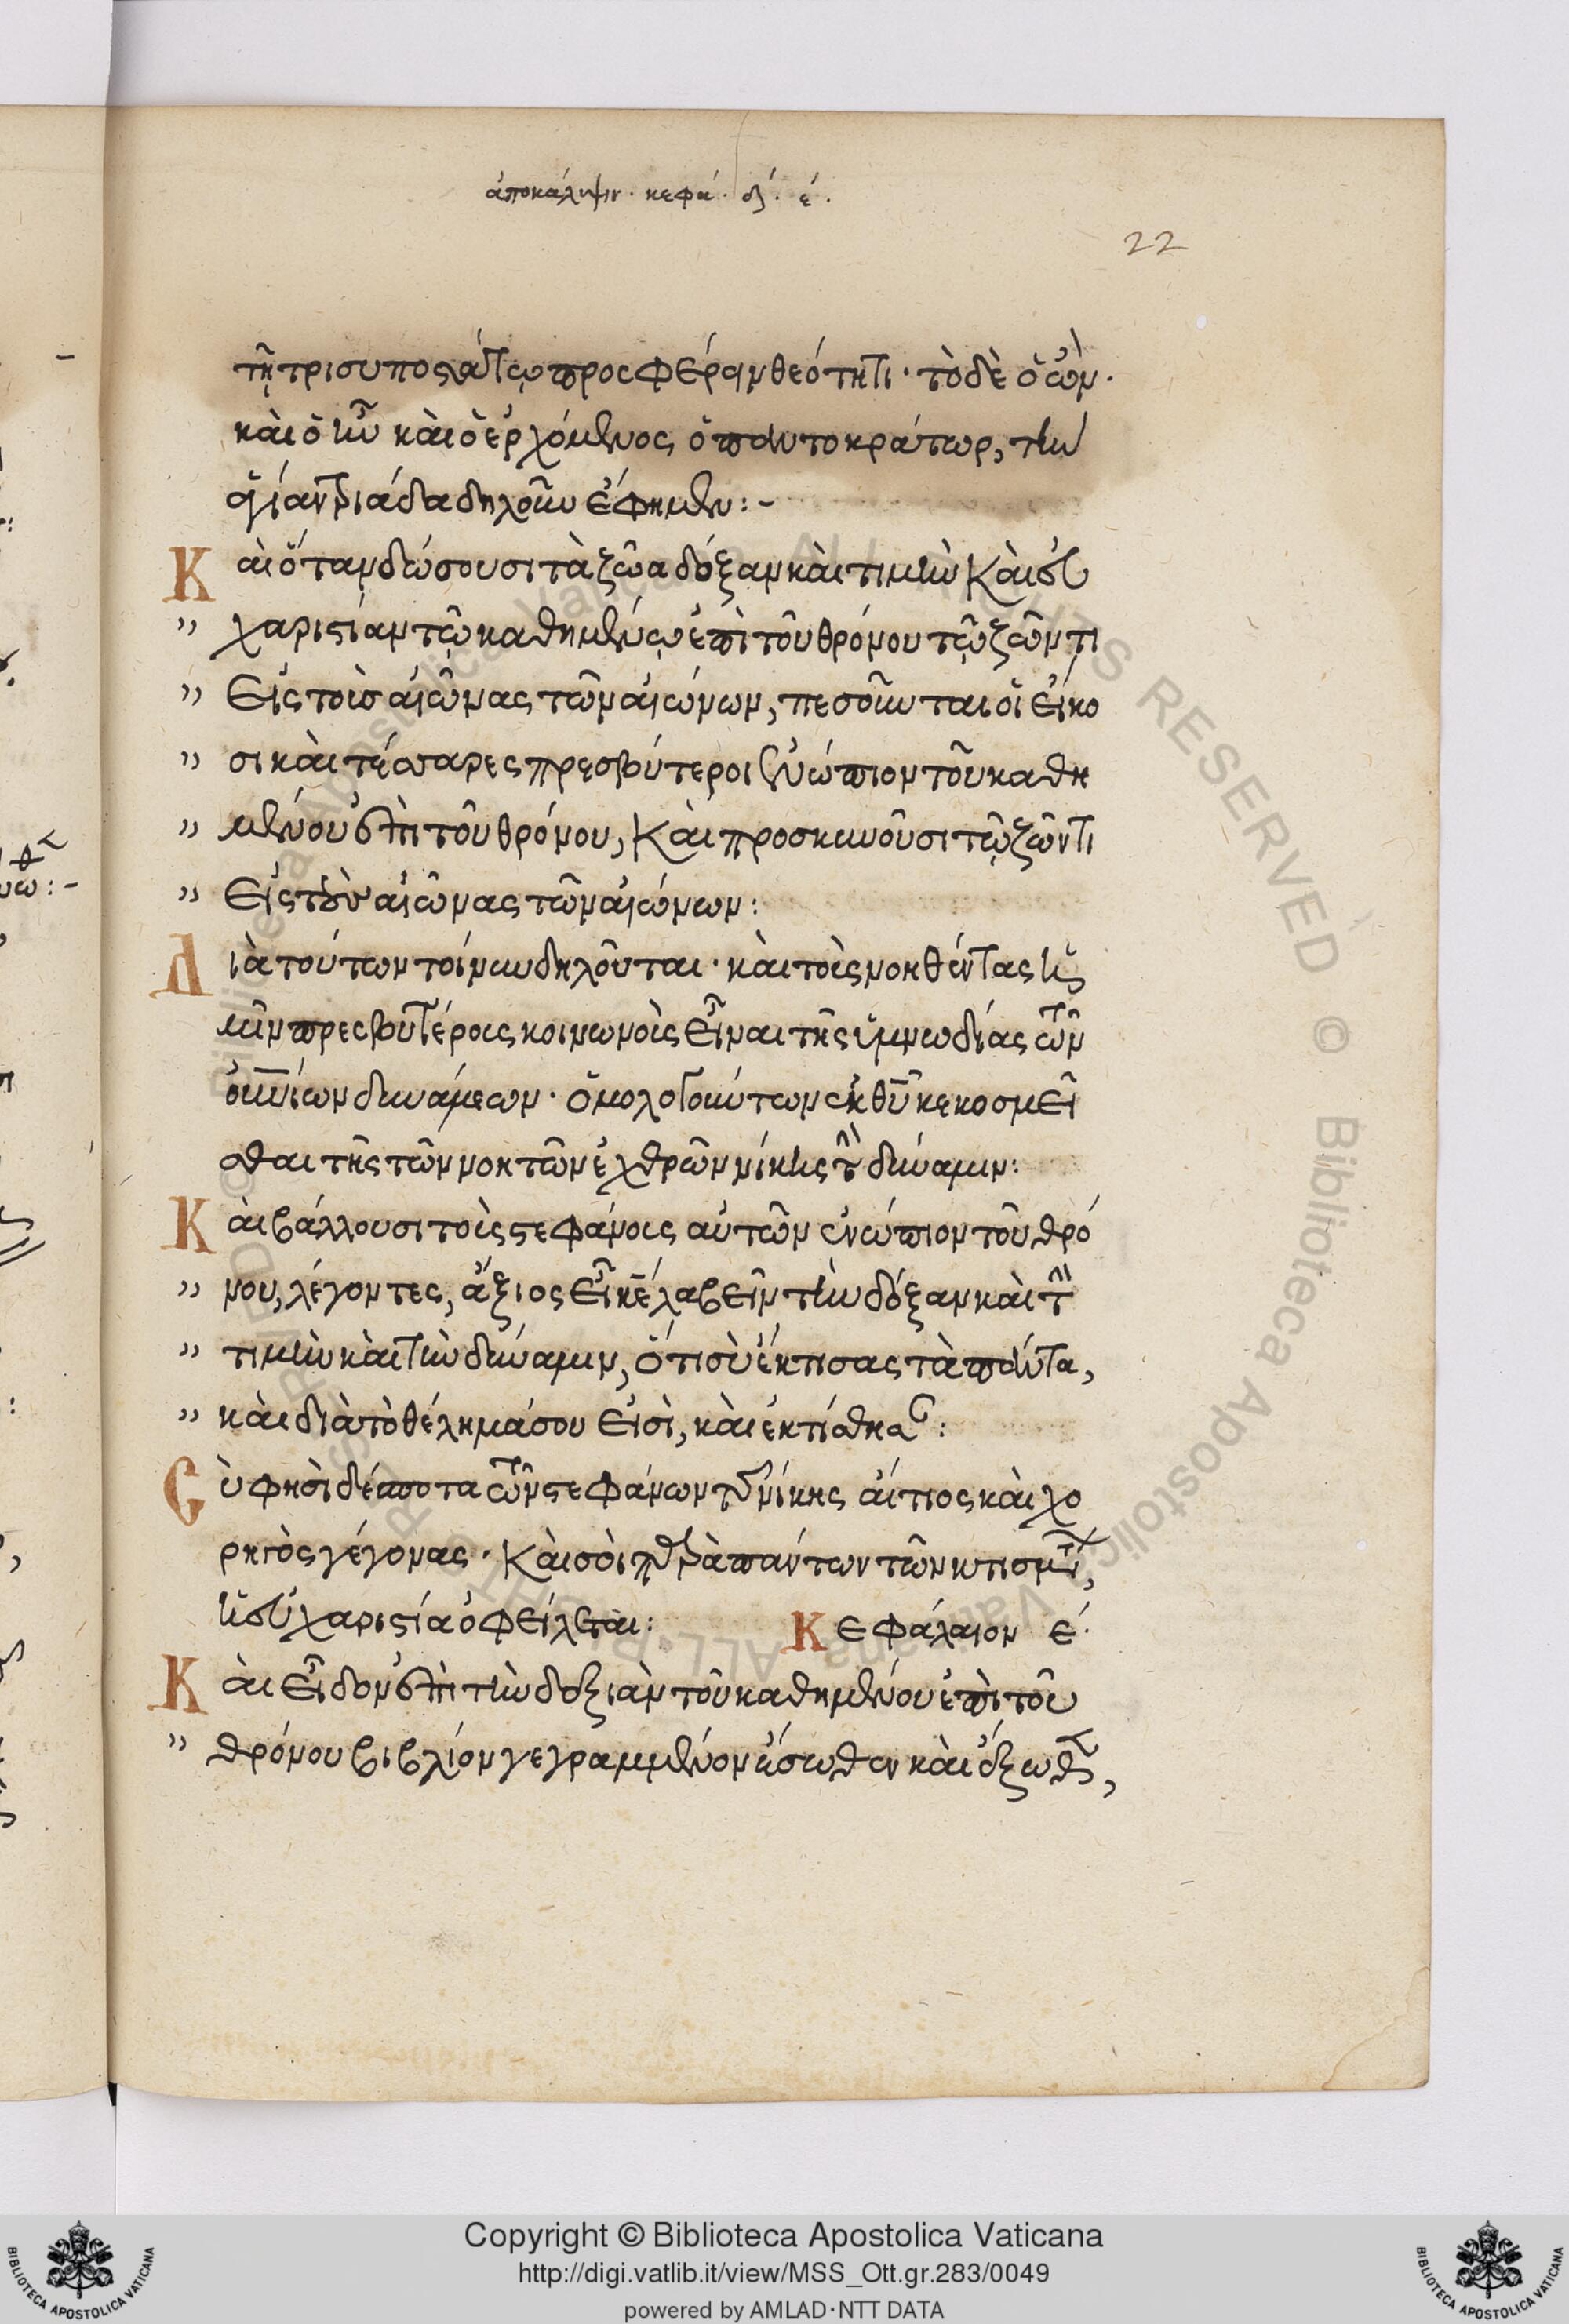 ἀποκάλυψιν· κεφά· δ΄· ε΄·
22
τῇ τρισυποστάτῳ προσφέρειν θεότητι· τὸ δὲ ὁ ὢν·
καὶ ὁ ἦν καὶ ὁ ἐρχόμενος ὁ παντοκράτωρ, τὴν
ἁγίαν τριάδα δηλοῦν ἔφημεν:-
Καὶ ὅταν δώσουσι τὰ ζῶα δόξαν καὶ τιμὴν καὶ εὐ
" χαριστίαν τῷ καθημένῳ ἐπὶ τοῦ θρόνου τῷ ζῶντι
" εἰς τοὺς αἰῶνας τῶν αἰώνων, πεσοῦνται οἱ εἴκο
" σι καὶ τέσσαρες πρεσβύτεροι ἐνώπιον τοῦ καθη
" μένου ἐπὶ τοῦ θρόνου, καὶ προσκυνοῦσι τῷ ζῶντι
" εἰς τοὺς αἰῶνας τῶν αἰώνων:
Διὰ τούτων τοίνυν δηλοῦται· καὶ τοὺς νοηθέντας ἡ
μῖν πρεσβυτέρους κοινωνοὺς εἶναι τῆς ὑμνωδίας τῶν
οὐνίων δυνάμεων· ὁμολογούντων ἐκ θῦ κεκοσμεῖ
σθαι τῆς τῶν νοητῶν ἐχθρῶν νίκης τὴν δύναμιν:
Καὶ βάλλουσι τοὺς στεφάνους αὐτῶν ἐνώπιον τοῦ θρό
" νου, λέγοντες, ἄξιος εἶ κε λαβεῖν τὴν δόξαν καὶ τὴν
" τιμὴν καὶ τὴν δύναμιν, ὅτι σὺ ἔκτισας τὰ πάντα,
" καὶ διὰ τὸ θέλημά σου εἰσὶ, καὶ ἐκτίσθησαν:
Σὺ φησὶ δέσποτα τῶν στεφάνων τῆς νίκης αἴτιος καὶ χο
ρηγὸς γέγονας· καὶ σοὶ παρὰ πάντων τῶν κτισμάτων,
ἡ εὐχαριστία ὀφείλεται: Κεφάλαιον ε΄·
Καὶ εἶδον ἐπὶ τὴν δεξιὰν τοῦ καθημένου ἐπὶ τοῦ
" θρόνου βιβλίον γεγραμμένον ἔσωθεν καὶ ἔξωθεν,
Copyright © Biblioteca Apostolica Vaticana
http://digi.vatlib.it/view/MSS_Ott.gr.283/0049
powered by AMLAD·NTT DATA